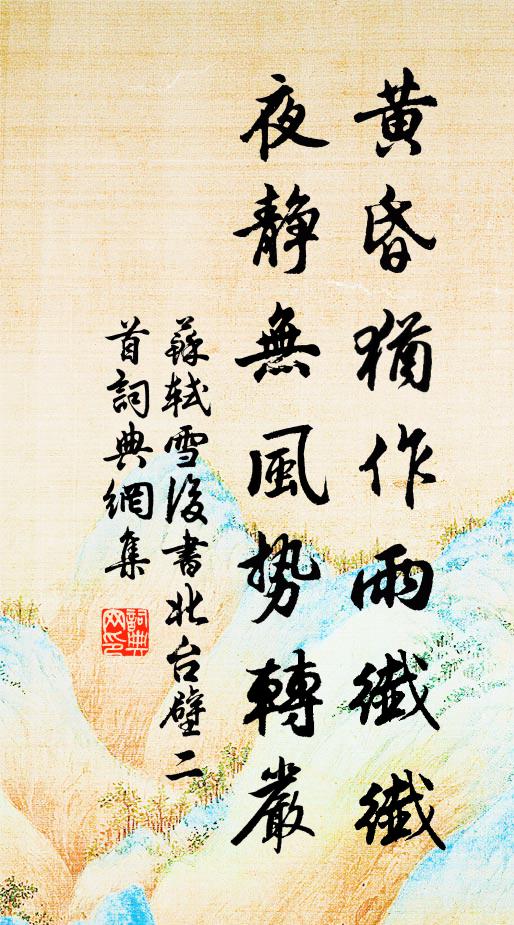 黄昏猶作雨纖纖
夜静無風势轉嚴
蘇轼雪後書北台壁二
首詞典網集
詞典
网印